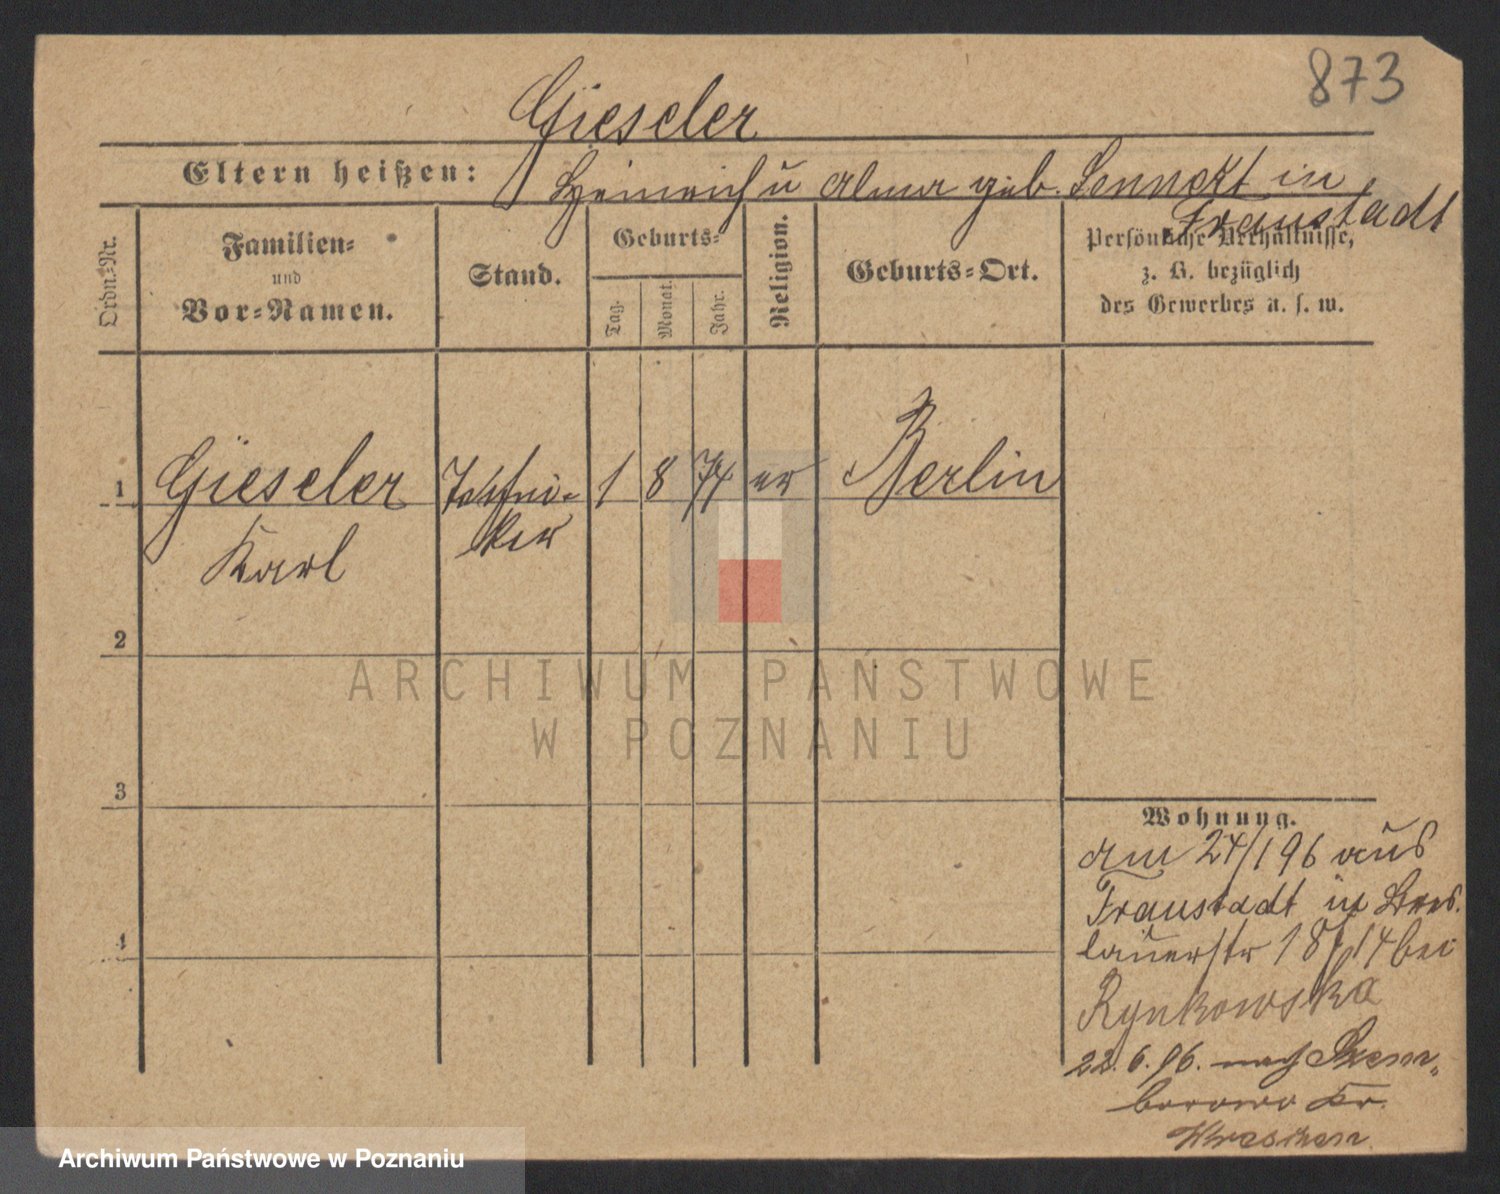 873
Gieseler
Eltern heißen: Heinrich u Alma geb. Sennert in
Fraustadt
Ordn.-Nr.
Familien-
und
Vor-Namen.
Stand.
Geburts-
Tag.
Monat.
Jahr.
Religion.
Geburts-Ort.
Persönliche Verhältnisse,
z. B. bezüglich
des Gewerbes u. s. w.
1 Gieseler Techni- 1 8 74 ev Berlin
Karl ker
2
3
4
Wohnung.
am 24/1 96 aus
Fraustadt in Bres-
lauerstr 18 14 bei
Rynkowska
22.6.96. nach Szem-
borowo Kr.
Wreschen
ARCHIWUM PAŃSTWOWE
W POZNANIU
Archiwum Państwowe w Poznaniu